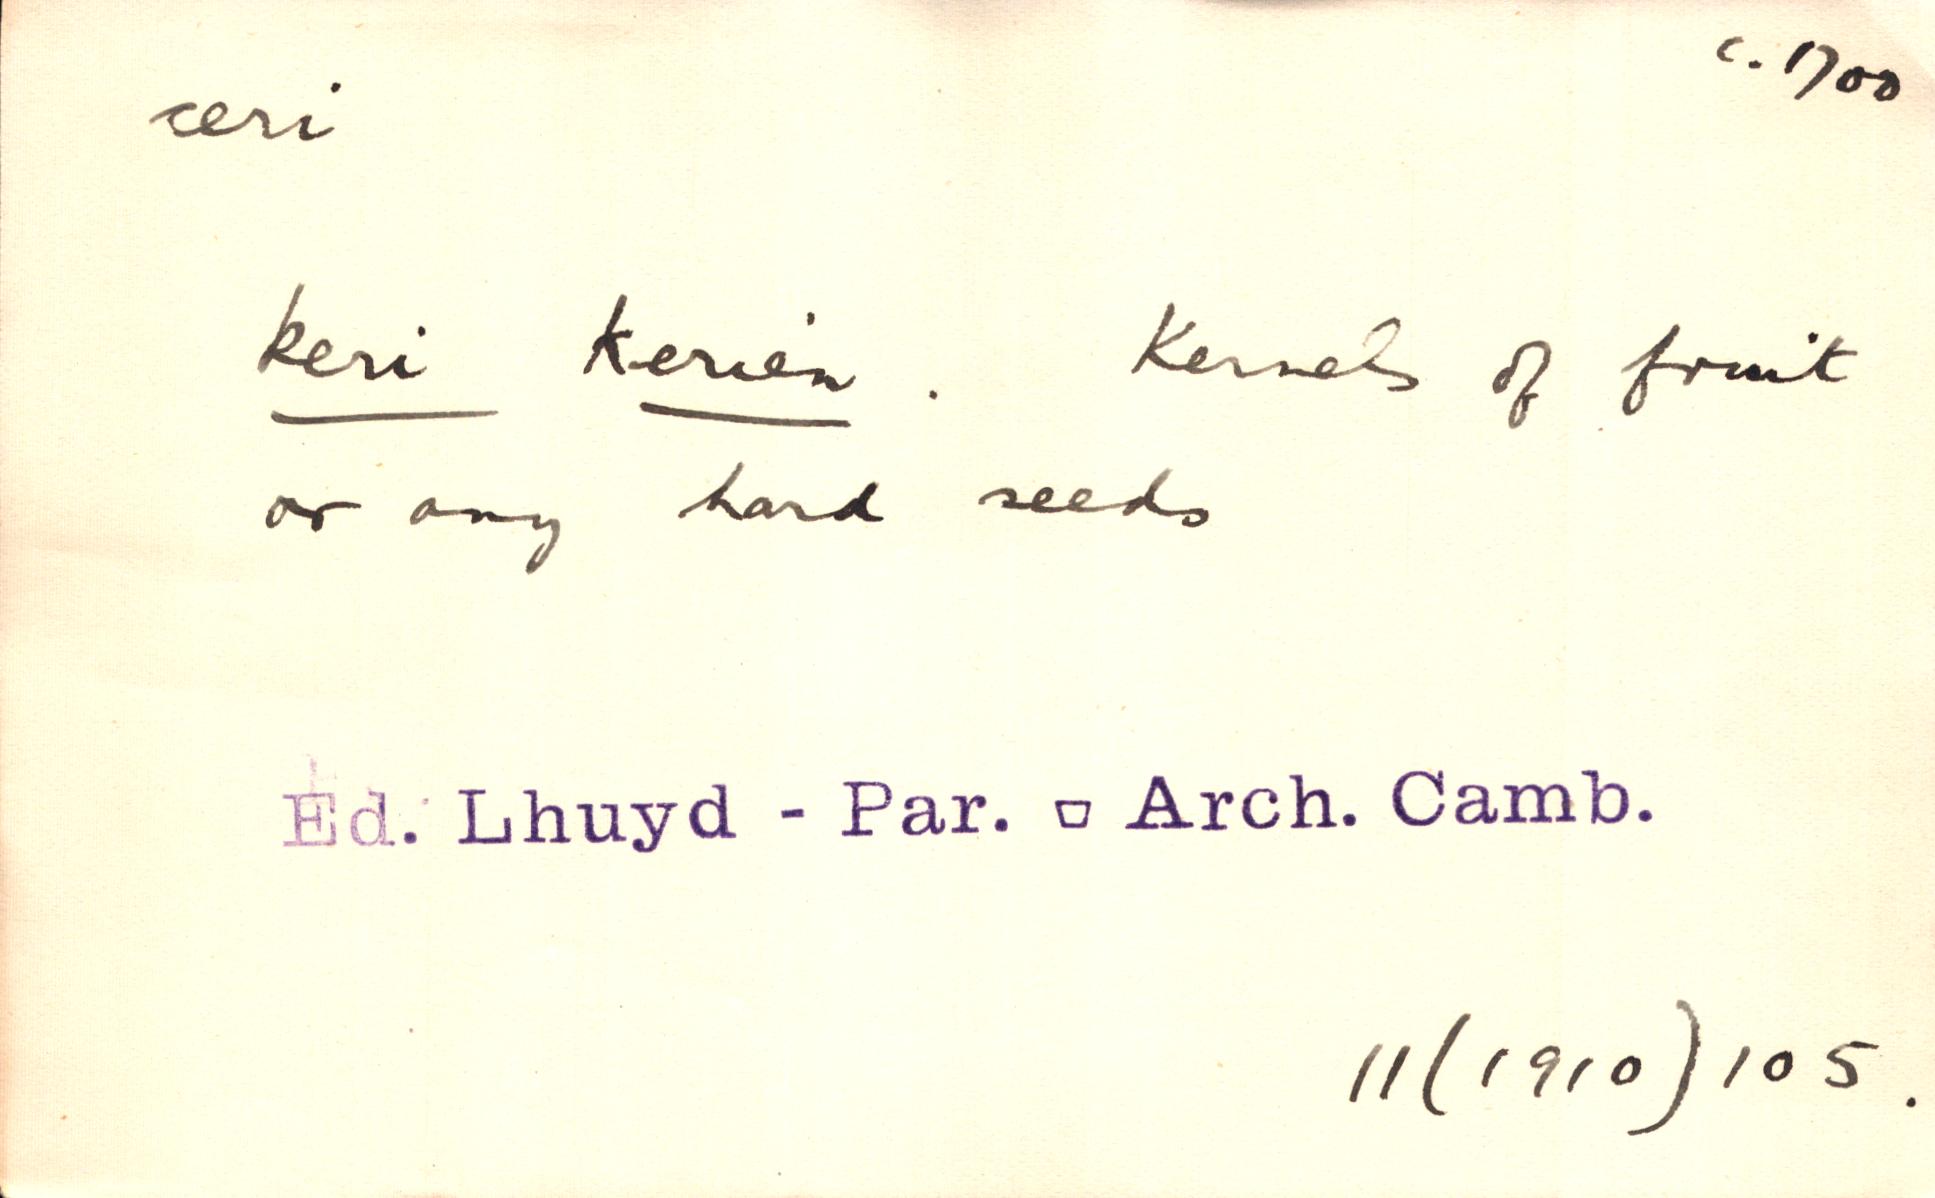 c. 1700
ceri
keri kerien. Kernels of fruit
or any hard seeds
Ed. Lhuyd - Par. ▫ Arch. Camb.
11(1910)105.